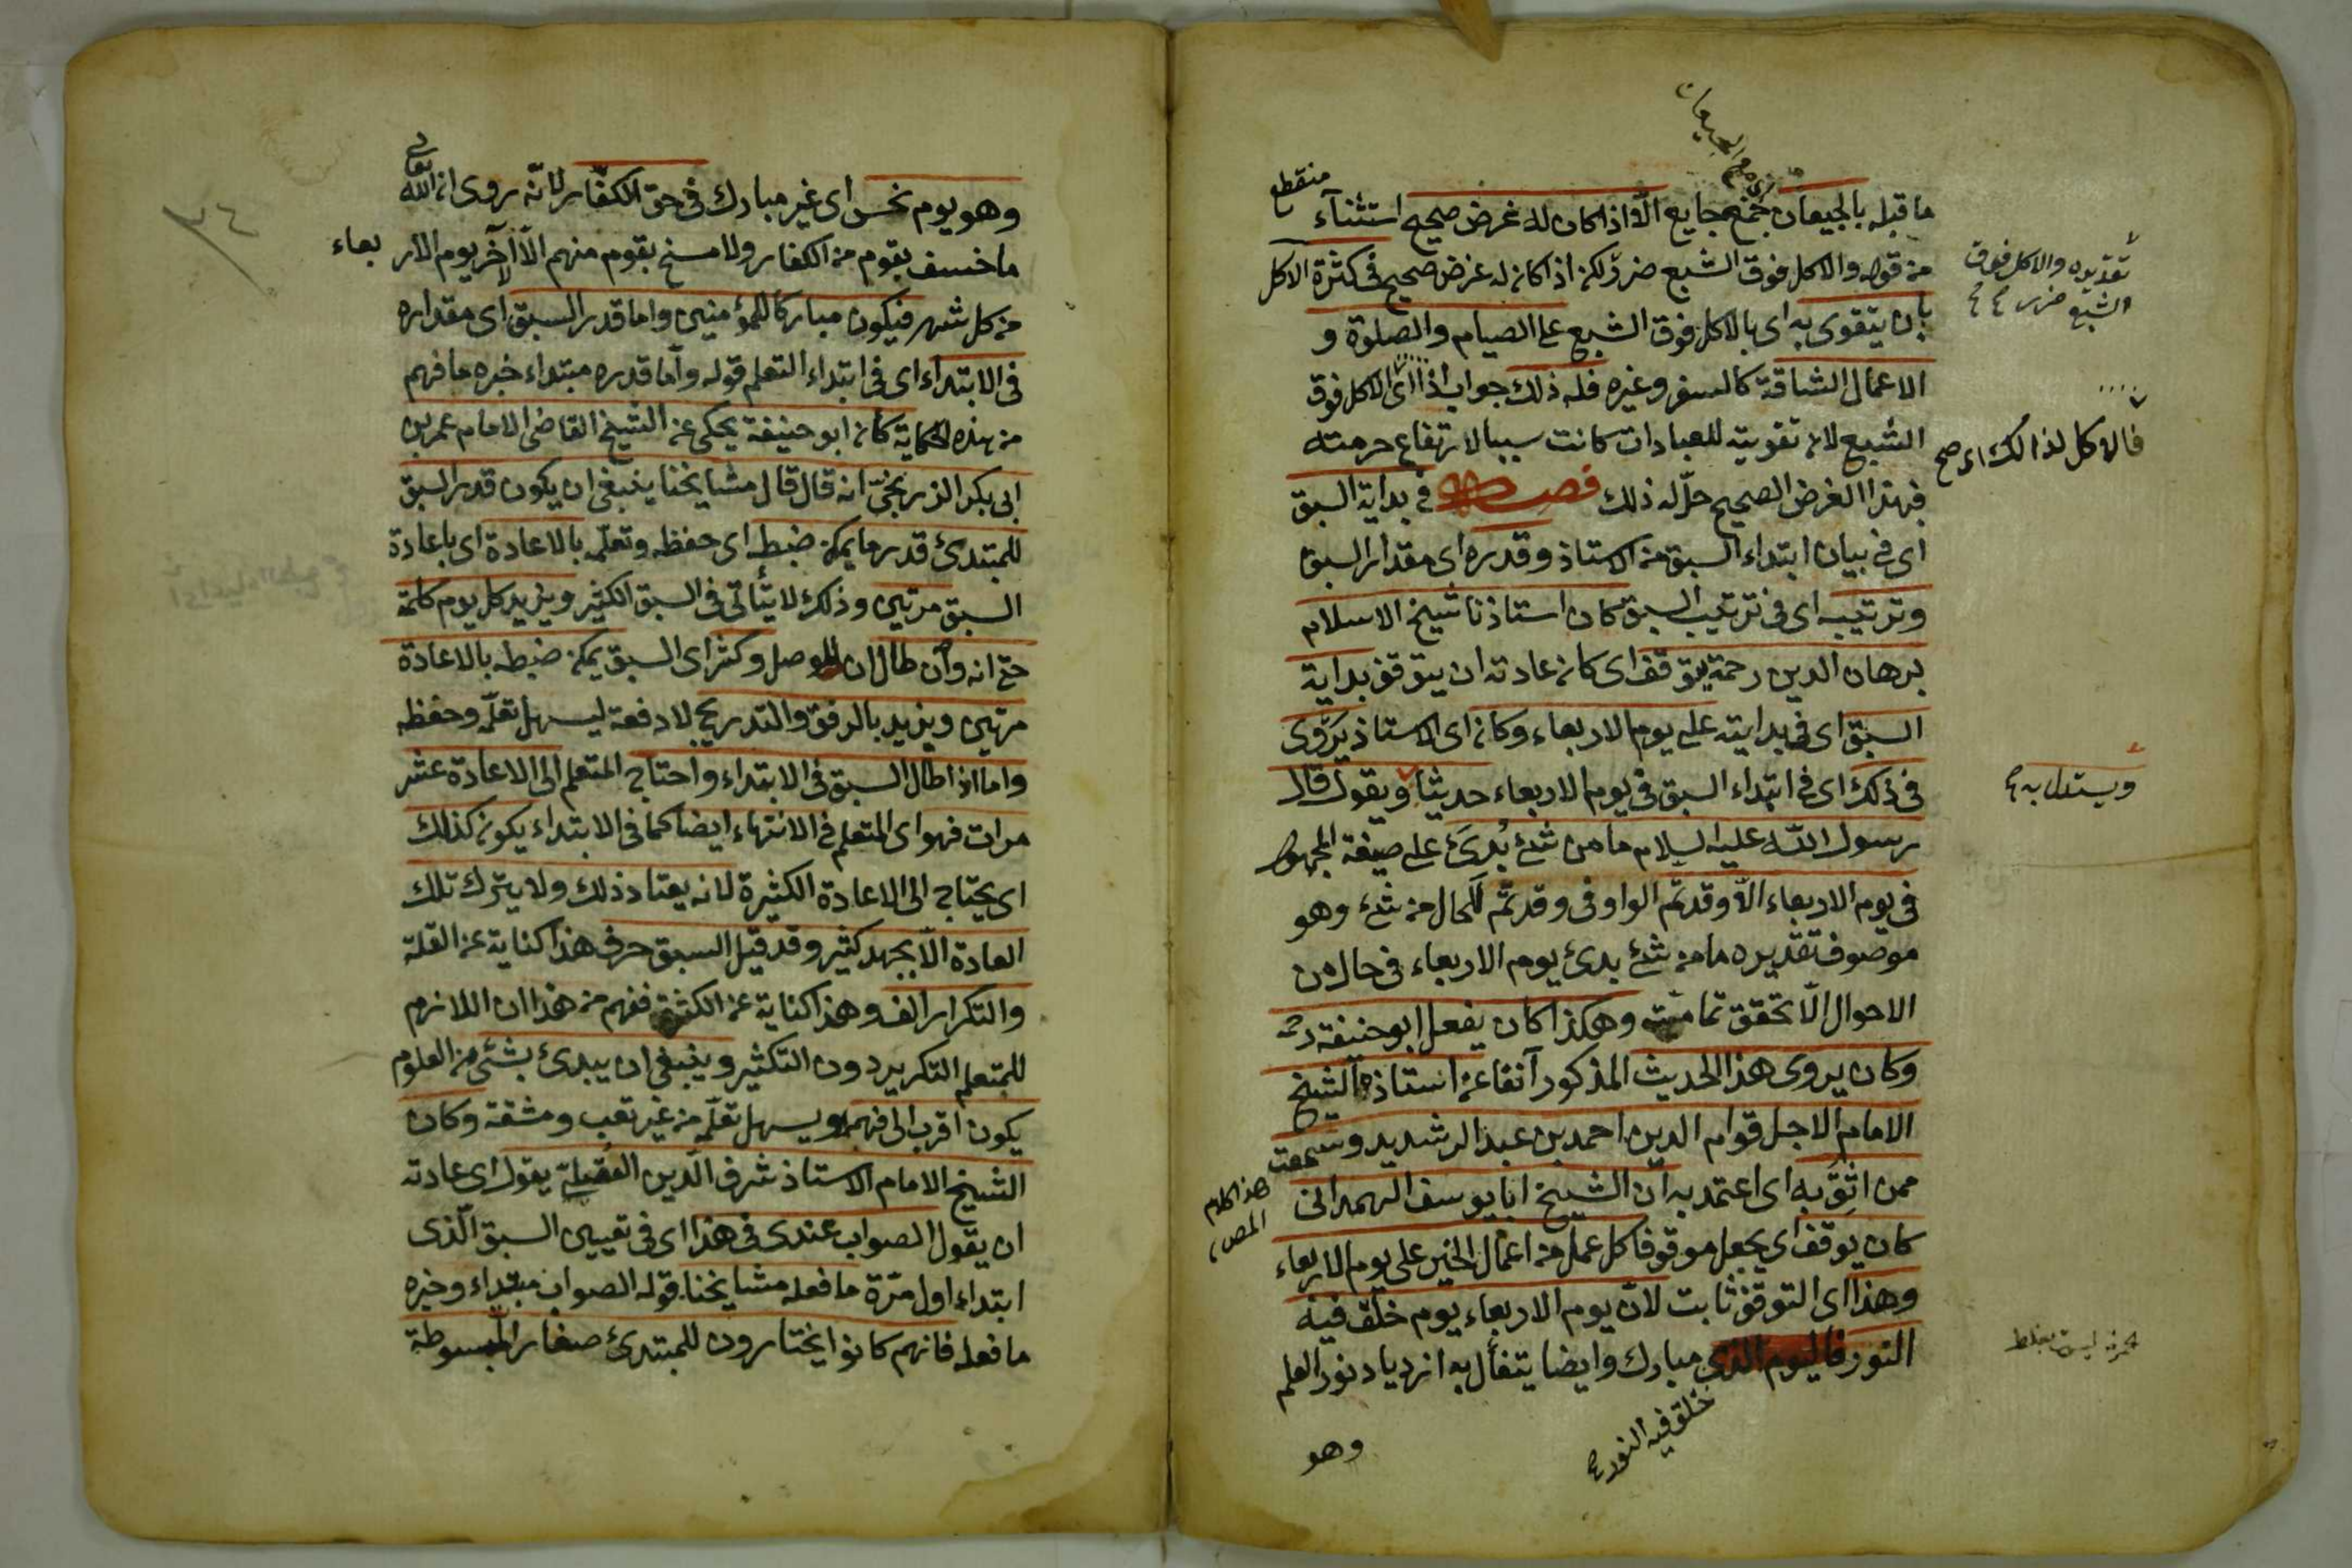 ما قبله بالجيعان جمع جايع الا اذا كان له غرض صحيح استثناء منقطع
من قوله والاكل فوق الشبع ضرر لكن اذا كان له غرض صحيح فى كثرة الاكل
بان يتقوى به اى بالاكل فوق الشبع على الصيام والصلوة و
الاعمال الشاقة كالسفر وغيره فله ذلك جواب اذا اى الاكل فوق
الشبع لان تقويته للعبادات كانت سببا لارتفاع حرمته
فبهذا الغرض الصحيح حل له ذلك فصل فى بداية السبق
اى فى بيان ابتداء السبق من الاستاذ وقدره اى مقدار السبق
وترتيبه اى فى ترتيب السبق كان استاذنا شيخ الاسلام
برهان الدين رحمة يتوقف اى كان عادته ان يتوقف بداية
السبق اى فى بدايته على يوم الاربعاء وكان اى الاستاذ يروى
فى ذلك اى فى ابتداء السبق فى يوم الاربعاء حديثا ويقول قال
رسول الله عليه السلام ما من شئ بدئ على صيغة المجهول
فى يوم الاربعاء الا وقد تم الواو فى وقد تم للحال من شئ وهو
موصوف تقديره ما من شئ بدئ يوم الاربعاء فى حال من
الاحوال الا تحقق تماميته وهكذا كان يفعل ابو حنيفة رحمه
وكان يروى هذا الحديث المذكور آنفا عن استاذه الشيخ
الامام الاجل قوام الدين احمد بن عبد الرشيد وسمعت
ممن اثق به اى اعتمد به ان الشيخ ابا يوسف الهمدانى
كان يوقف اى يجعل موقوفا كل عمل من اعمال الخير على يوم الاربعاء
وهذا اى التوقف ثابت لان يوم الاربعاء يوم خلق فيه
النور فاليوم الذى مبارك وايضا يتفأل به ازدياد نور العلم
وهو
خلق فيه النور
تقديره والاكل فوق
الشبع ضرر
فالاكل لذالك اى صح
ويستدل به
هذا كلام
المص
وهو يوم نحس اى غير مبارك فى حق الكفار لانه روى ان الله تعالى
ما خسف بقوم من الكفار ولا مسخ بقوم منهم الا آخر يوم الاربعاء
من كل شهر فيكون مباركا للمؤمنين واما قدر السبق اى مقداره
فى الابتداء اى فى ابتداء التعلم قوله واما قدره مبتداء خبره ما فهم
من هذه الحكاية كان ابو حنيفة يحكى عن الشيخ القاضى الامام عمر بن
ابى بكر الزرنجى انه قال قال مشايخنا ينبغى ان يكون قدر السبق
للمبتدئ قدر ما يمكن ضبطه اى حفظه وتعلمه بالاعادة اى باعادة
السبق مرتين وذلك لا يتأتى فى السبق الكثير ويزيد كل يوم كلمة
حتى انه وان طال ان للوصل وكثر اى السبق يمكن ضبطه بالاعادة
مرتين ويزيد بالرفق والتدريج لا دفعة ليسهل تعلمه وحفظه
واما اذا طال السبق فى الابتداء واحتاج المتعلم الى الاعادة عشر
مرات فهو اى المتعلم فى الانتهاء ايضا كما فى الابتداء يكون كذلك
اى يحتاج الى الاعادة الكثيرة لانه يعتاد ذلك ولا يترك تلك
العادة الا بجهد كثير وقد قيل السبق حرف هذا كناية عن القلة
والتكرار الف وهذا كناية عن الكثرة ففهم من هذا ان اللازم
للمتعلم التكرير دون التكثير وينبغى ان يبدئ بشئ من العلوم
يكون اقرب الى فهمه ويسهل تعلمه من غير تعب ومشقة وكان
الشيخ الامام الاستاذ شرف الدين العقيلى يقول اى عادته
ان يقول الصواب عندى فى هذا اى فى تعيين السبق الذى
ابتداء اول مرة ما فعله مشايخنا قوله الصواب مبتداء وخبره
ما فعله فانهم كانوا يختارون للمبتدئ صغار المبسوطة
٢٤